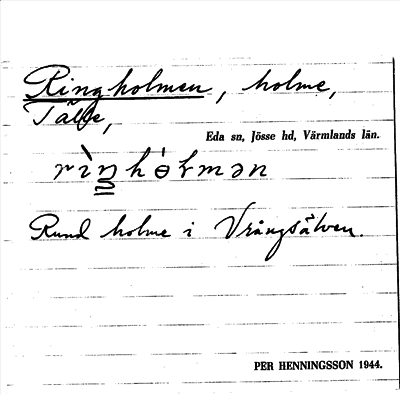 Ringholmen, holme,
Tälje,
Eda sn, Jösse hd, Värmlands län.
Rund holme i Vrångsälven.
PER HENNINGSSON 1944.